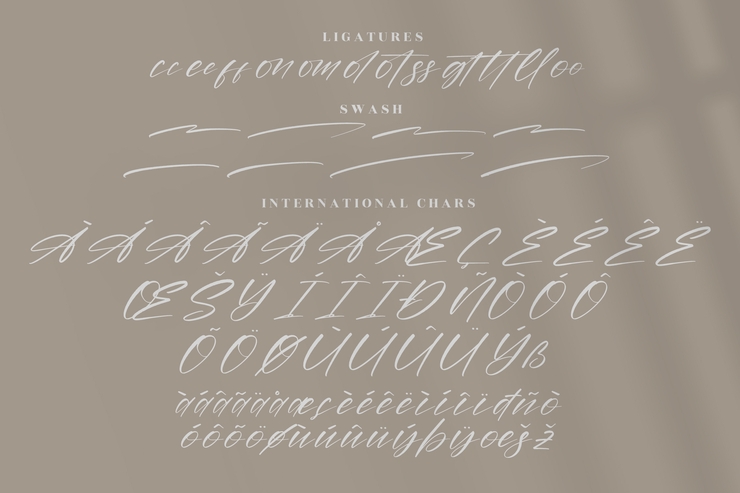 LIGATURES
cc ee ff on om ol ot ss gt tt ll oo
SWASH
INTERNATIONAL CHARS
À Á Â Ã Ä Å Æ Ç È É Ê Ë
Œ Š Ÿ Í Î Ï Ð Ñ Ò Ó Ô
Õ Ö Ø Ù Ú Û Ü Ý ß
à á â ã ä å æ ç è é ê ë ì í î ï đ ñ ò
ó ô õ ö ø ù ú û ü ý þ ÿ œ š ž